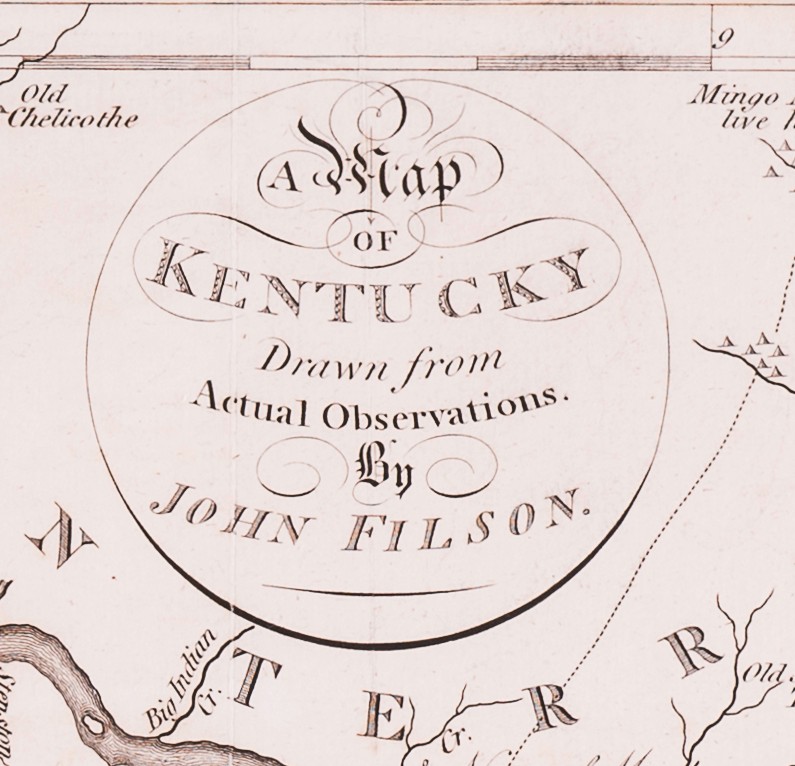 9
Old
Chelicothe
Mingo
live
A Map
OF
KENTUCKY
Drawn from
Actual Observations.
By
JOHN FILSON.
N
Big Indian
Cr.
T E R R
Old
Cr.